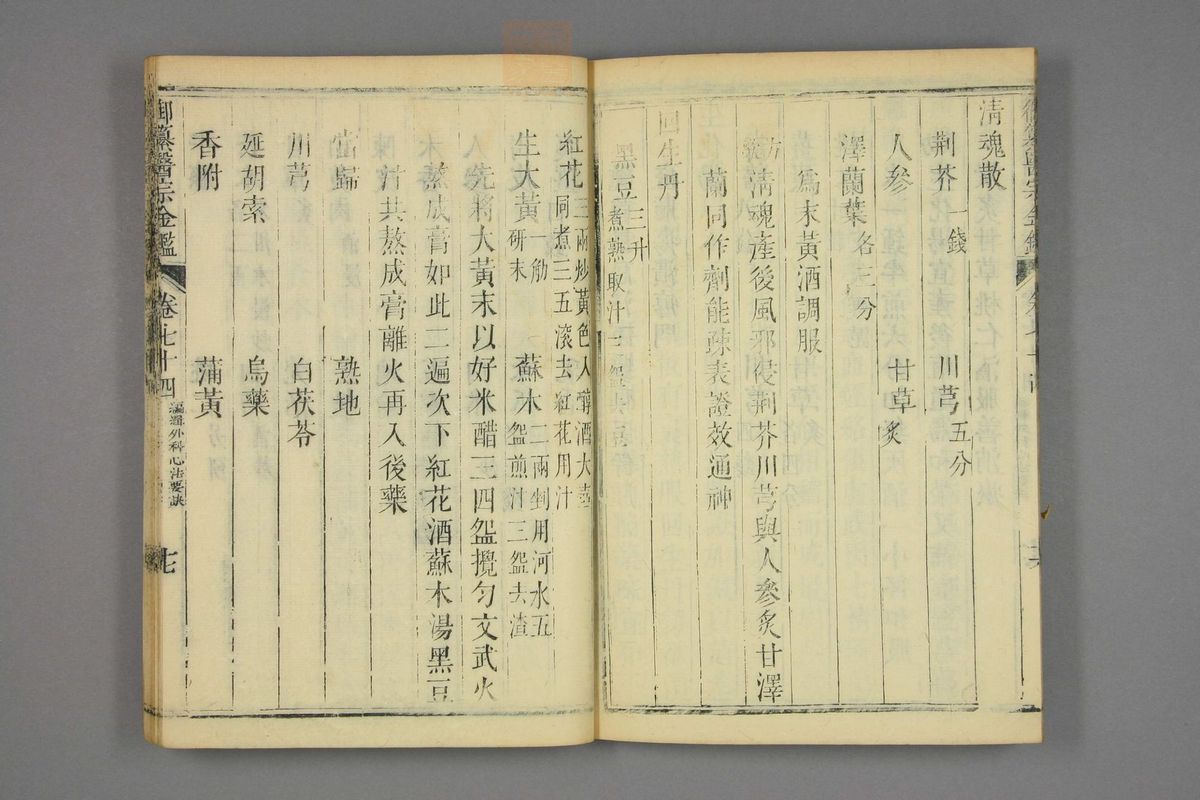 清魂散
荆芥一錢 川芎五分
人參 甘草炙
澤蘭葉各三分
爲末黃酒調服
方歌 清魂產後風邪侵荆芥川芎與人參炙甘澤
蘭同作劑能疎表證效通神
回生丹
黑豆三升煮熟取汁三盌
紅花三兩炒黃色入醇酒大壺同煮三五滾去紅花用汁
生大黃一觔研末 蘇木二兩剉用河水五盌煎汁三盌去渣
先將大黃末以好米醋三四盌攪勻文武火
熬成膏如此二遍次下紅花酒蘇木湯黑豆
汁共熬成膏離火再入後藥
當歸 熟地
川芎 白茯苓
延胡索 烏藥
香附 蒲黃
御纂醫宗金鑑 卷七十四 編輯外科心法要訣 七